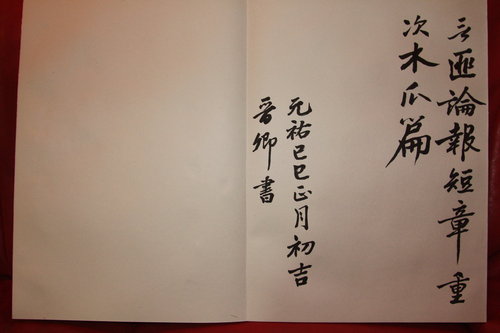 言匪論報短章重
次木瓜篇
元祐己巳正月初吉
晋卿書